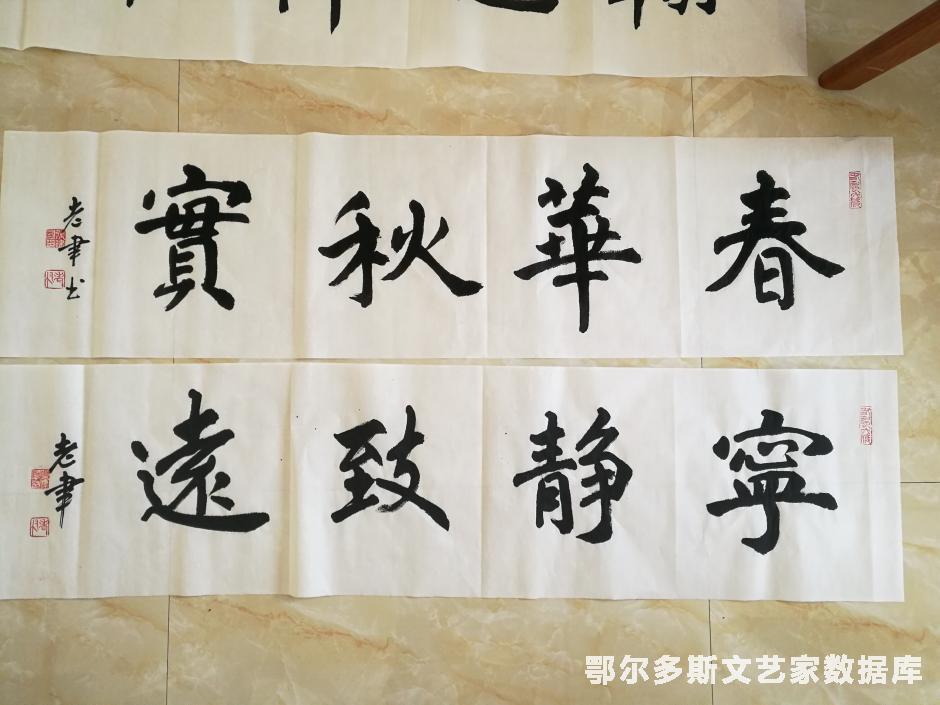 春華秋實
老聿书
寧静致遠
老聿
鄂尔多斯文艺家数据库